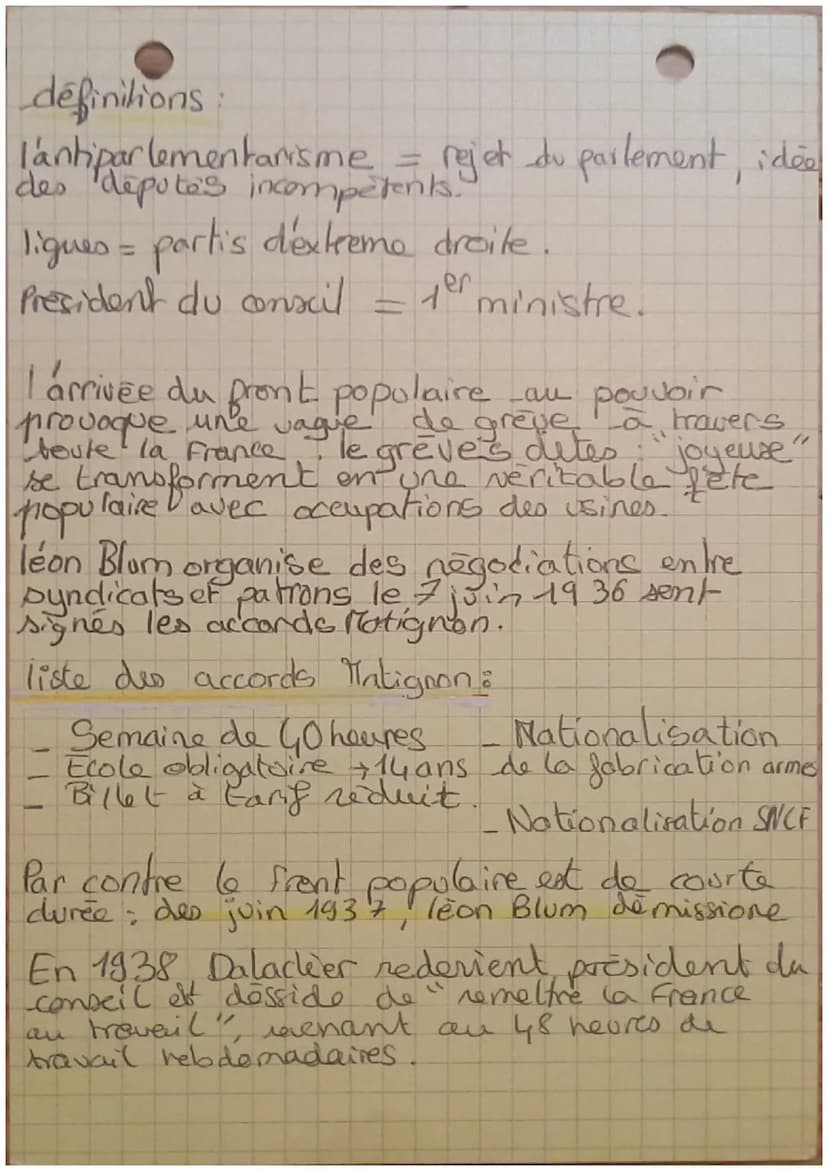 définitions :
l'antiparlementarisme = rejet du parlement, idée
des députés incompétents.
ligues = partis d'extreme droite.
Président du conseil = 1er ministre.
l'arrivée du front populaire au pouvoir
provoque une vague de grève à travers
toute la France, le grèves dites : "joyeuse"
se transforment en une véritable fête
populaire avec occupations des usines.
léon Blum organise des négodiations entre
syndicats et patrons le 7 juin 1936 sont
signés les accords Matignon.
liste des accords Matignon :
- Semaine de 40 heures
- Ecole obligatoire → 14 ans
- Billet à tarif réduit.
- Nationalisation
de la fabrication armes
- Nationalisation SNCF
Par contre le front populaire est de courte
durée : des juin 1937, léon Blum démissione
En 1938, Daladier redevient président du
conseil et désside de "remettre la France
au travail", revenant au 48 heures de
travail hebdomadaires.